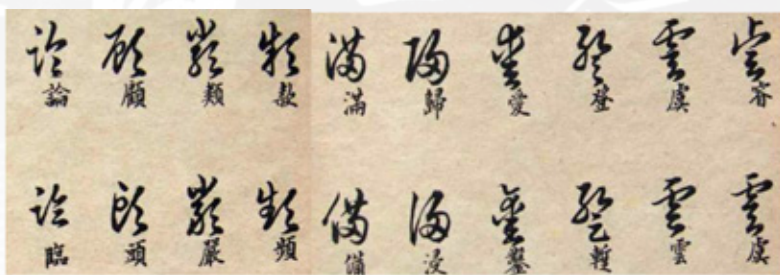 論 顧 類 款 滿 歸 愛 登 虞 睿
臨 頭 嚴 頻 備 浸 鑿 暫 雲 虞